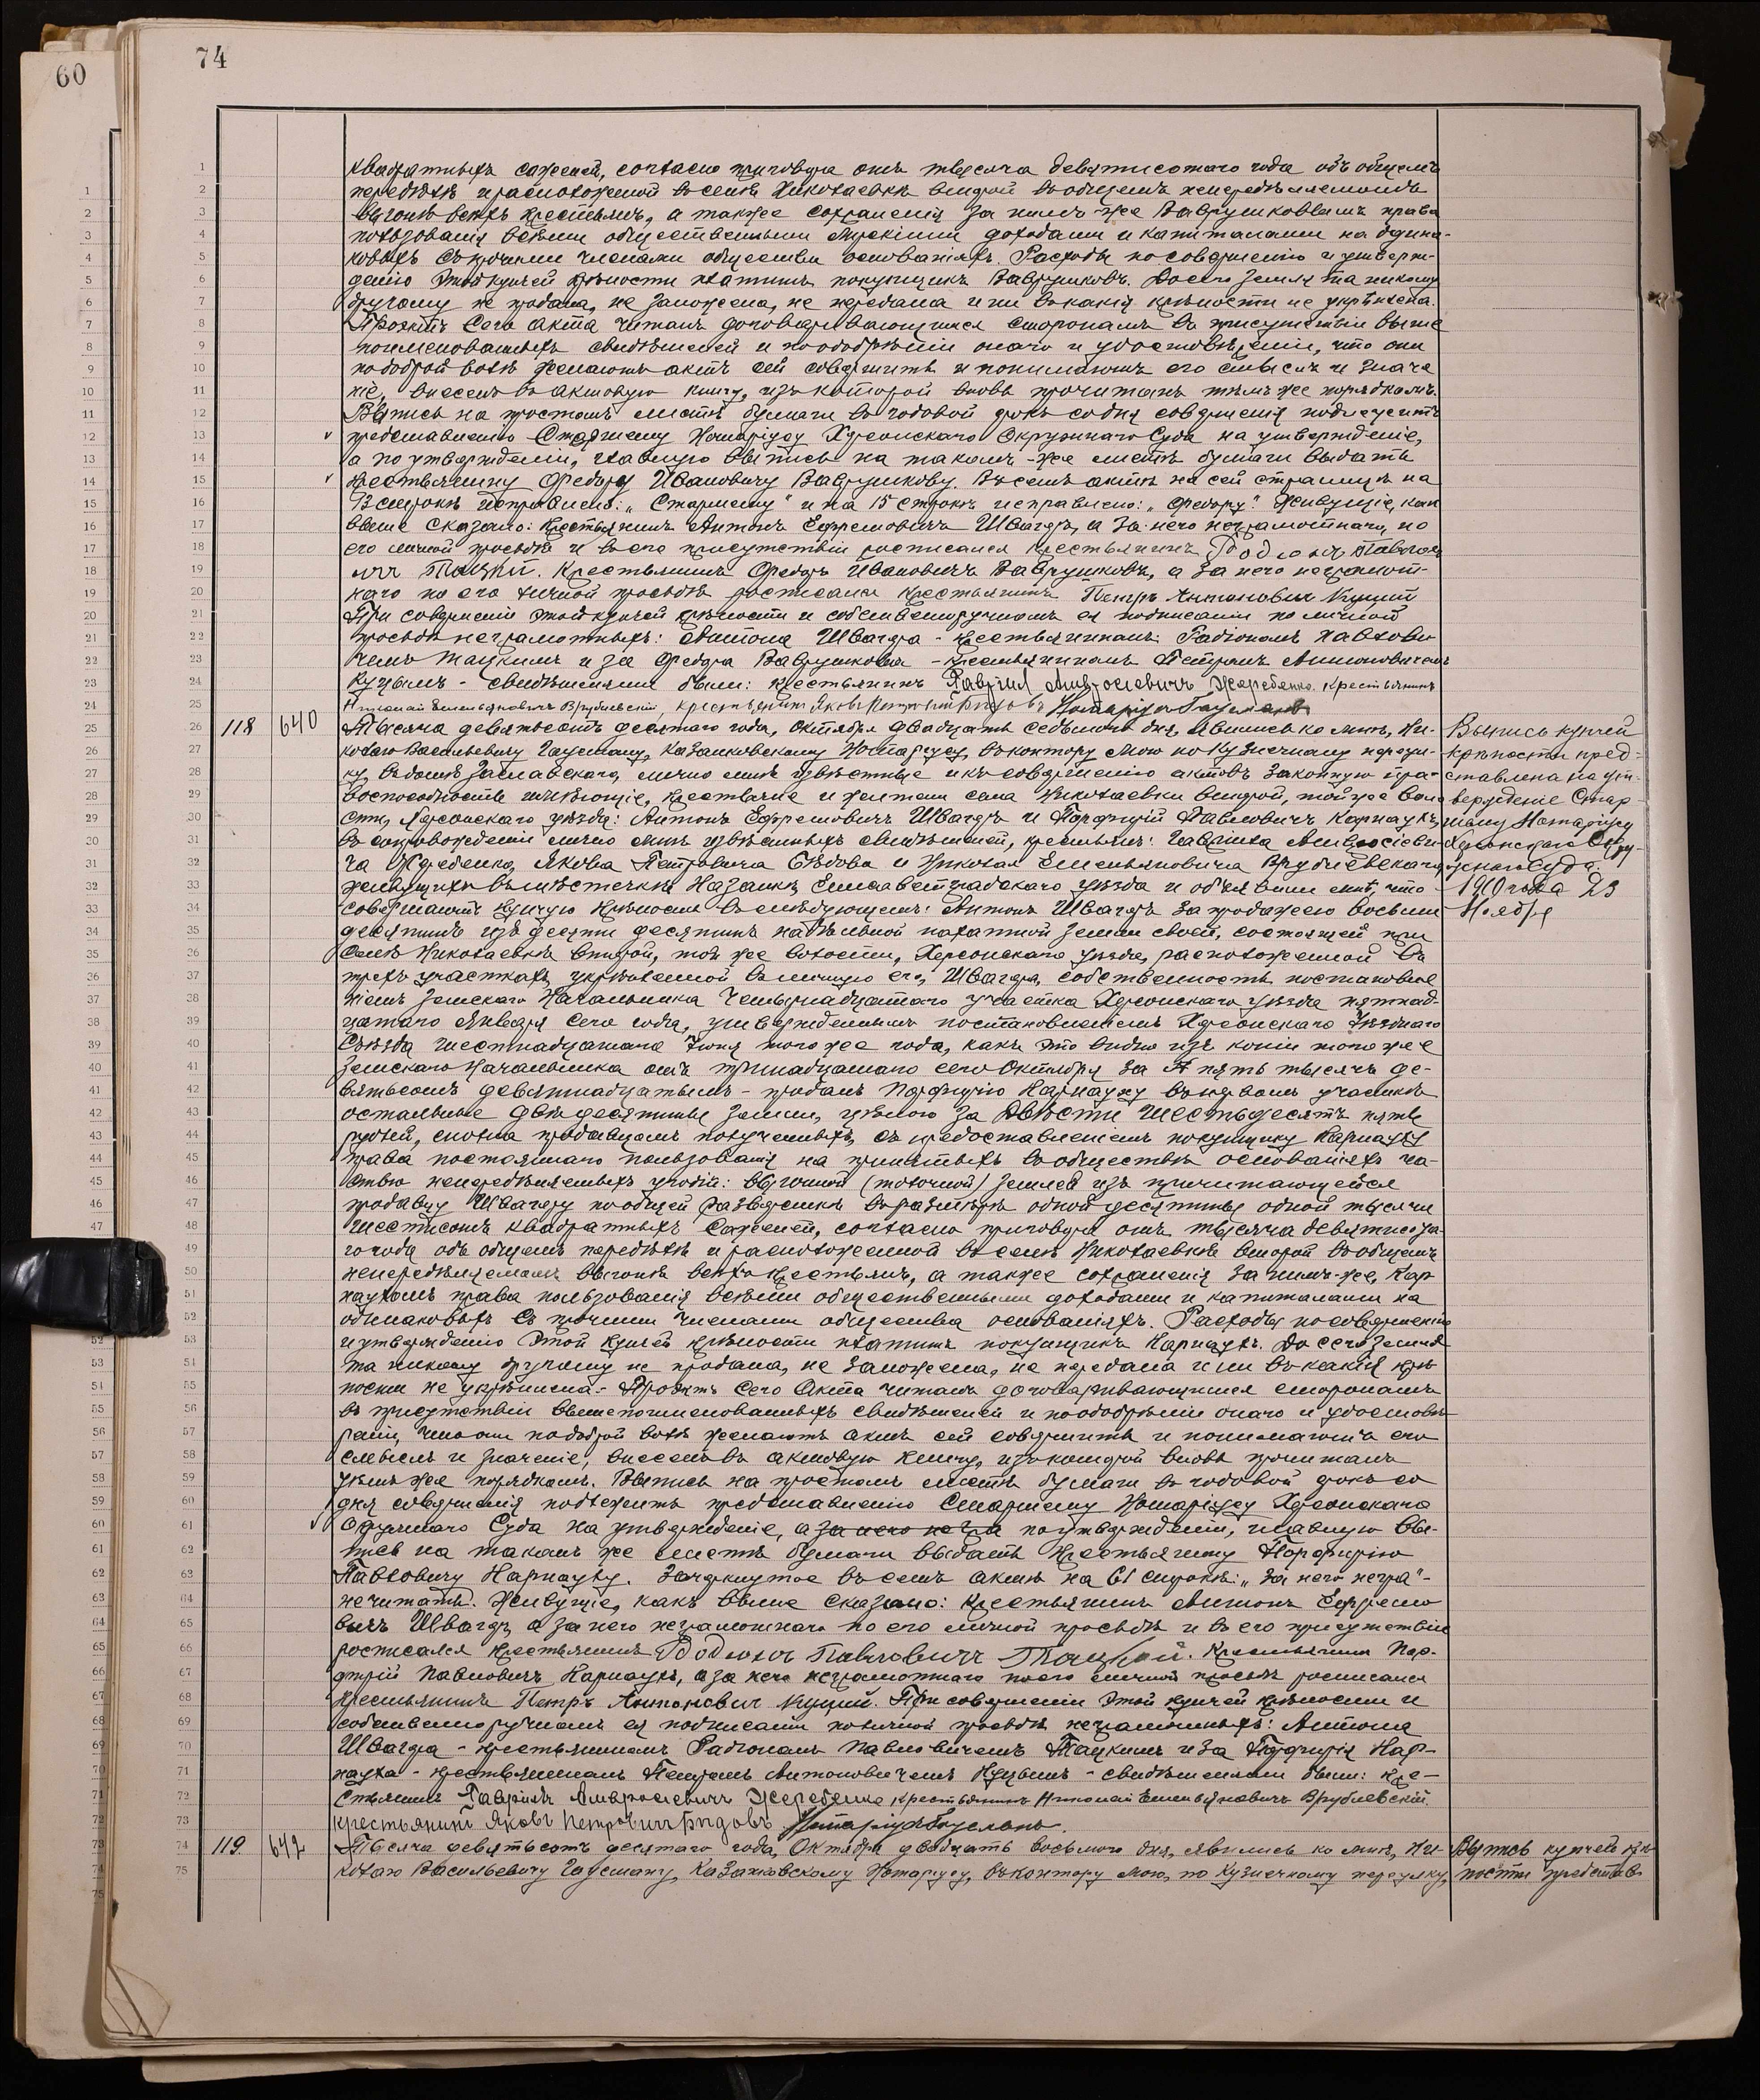 60
74
квадратныхъ саженей, согласно приговора отъ тысяча девятисотаго года объ общемъ
передѣлѣ и расположенной въ селѣ Николаевкѣ второй въ общемъ непередѣляемомъ
выгонѣ всѣхъ крестьянъ, а также сохраненія за нимъ-же Ваврушковымъ права
пользованія всѣми общественными мірскими доходами и капиталами на одина-
ковыхъ съ прочими членами общества основаніяхъ. Расходы по совершенію и утверж-
денію этой купчей крѣпости платитъ покупщикъ Ваврушковъ. До сего земля та никому
другому не продана, не заложена, не передана и ни въ какія крѣпости не укрѣплена.
Проэктъ сего акта читанъ договаривающимся сторонамъ въ присутствіи выше
поименованныхъ свидѣтелей и по одобреніи онаго и удостовѣреніи, что они
по доброй волѣ желаютъ актъ сей совершить и понимаютъ его смыслъ и значе
ніе, внесенъ въ актовую книгу, изъ которой вновь прочитанъ тѣмъ же порядкомъ.
Выпись на простомъ листѣ бумаги въ годовой срокъ со дня совершенія подлежитъ
представленію Старшему Нотаріусу Херсонскаго Окружнаго Суда на утвержденіе,
а по утвержденіи, главную выпись на такомъ-же листѣ бумаги выдать
крестьянину Федору Ивановичу Ваврушкову. Въ семъ актѣ на сей страницѣ на
13 строкѣ исправлено: „Старшему" и на 15 строкѣ исправлено: „Федору". Живущіе, какъ
выше сказано: Крестьянинъ Антонъ Ефремовичъ Швагръ, а за него неграмотнаго, по
его личной просьбѣ и въ его присутствіи росписался крестьянинъ Родионъ Павлов
ичъ Тацкій. Крестьянинъ Федоръ Ивановичъ Ваврушковъ, а за него неграмот-
наго по его личной просьбѣ росписался крестьянинъ Петръ Антоновичъ Куций
При совершеніи этой купчей крѣпости и собственноручномъ ея подписаніи по личной
просьбѣ неграмотныхъ: Антона Швагра - крестьяниномъ Радіономъ Павлови
чемъ Тацкимъ и за Федора Ваврушкова - крестьяниномъ Петромъ Антоновичемъ
Куцымъ - свидѣтелями были: крестьянинъ Гавріил Амвросіевичъ Жеребенко. Крестьянинъ
Николай Емельяновичъ Врублевскій, Крестьянинъ Яковъ Петровичъ Бѣдовъ Нотаріусъ Гаусманъ
118 640 Тысяча девятьсотъ десятаго года, Октября двадцать седьмого дня, явились ко мнѣ, Ни-
колаю Васильевичу Гаусману, Казанковскому Нотаріусу, въ контору мою по Кузнечному переул-
ку, въ домѣ Заславскаго, лично мнѣ извѣстные и къ совершенію актовъ законную пра-
воспособность имѣющіе, крестьяне и жители села Николаевки второй, той же воло
сти, Херсонскаго уѣзда: Антонъ Ефремовичъ Швагръ и Порфирій Павловичъ Карнаухъ,
въ сопровожденіи лично мнѣ извѣстныхъ свидѣтелей, крестьянъ: Гавріила Амвросіеви-
ча Жеребенко, Якова Петровича Бѣдова и Николая Емельяновича Врублевскаго,
живущихъ въ мѣстечкѣ Казанкѣ Елисаветградскаго уѣзда и объявили мнѣ, что
совершаютъ купчую крѣпость въ слѣдующемъ: Антонъ Швагръ за продажею восьми
десятинъ изъ десяти десятинъ надѣльной пахатной земли своей, состоящей при
селѣ Николаевкѣ второй, той же волости, Херсонскаго уѣзда, расположенной въ
трехъ участкахъ, укрѣпленной въ личную его, Швагра, собственность постановле
ніемъ Земскаго Начальника Четырнадцатаго участка Херсонскаго уѣзда пятнад-
цатаго Января сего года, утвержденнымъ постановленіемъ Херсонскаго Уѣзднаго
Съѣзда шестнадцатаго Іюня того же года, какъ это видно изъ копіи того же
Земскаго Начальника отъ тринадцатаго сего Октября за № пять тысячъ де-
вятьсотъ девятнадцатымъ - продалъ Порфирію Карнауху въ первомъ участкѣ
остальные двѣ десятины земли, цѣною за двѣсти шестьдесятъ пять
рублей, сполна продавцомъ полученныхъ, съ предоставленіемъ покупщику Карнауху
права постояннаго пользованія на принятыхъ въ обществѣ основаніяхъ ча-
стью непередѣляемыхъ угодій: выгонной (толочной) землей изъ причитающейся
продавцу Швагру по общей разверсткѣ въ размѣрѣ одной десятины одной тысячи
шестисотъ квадратныхъ саженей, согласно приговора отъ тысяча девятисота-
го года объ общемъ передѣлѣ и расположенной въ селѣ Николаевкѣ второй въ общемъ
непередѣляемомъ выгонѣ всѣхъ крестьянъ, а также сохраненія за нимъ-же, Кар
наухомъ права пользованія всѣми общественными доходами и капиталами на
одинаковыхъ съ прочими членами общества основаніяхъ. Расходы по совершенію
и утвержденію этой купчей крѣпости платитъ покупщикъ Карнаухъ. До сего земля
та никому другому не продана, не заложена, не передана и ни въ какія крѣ
пости не укрѣплена. Проэктъ сего акта читанъ договаривающимся сторонамъ
въ присутствіи вышепоименованныхъ свидѣтелей и по одобреніи онаго и удостовѣ-
реніи, что они по доброй волѣ желаютъ актъ сей совершить и понимаютъ его
смыслъ и значеніе, внесенъ въ актовую книгу, изъ которой вновь прочитанъ
тѣмъ же порядкомъ. Выпись на простомъ листѣ бумаги въ годовой срокъ со
дня совершенія подлежитъ представленію Старшему Нотаріусу Херсонскаго
Окружнаго Суда на утвержденіе, а за него негра по утвержденіи, главную вы-
пись на такомъ же листѣ бумаги выдать крестьянину Порфирію
Павловичу Карнауху. Зачеркнутое въ семъ актѣ на 61 строкѣ: „за него негра" -
не читать. Живущіе, какъ выше сказано: крестьянинъ Антонъ Ефремо
вичъ Швагръ, а за него неграмотнаго по его личной просьбѣ и въ его присутствіи
росписался крестьянинъ Родионъ Павловичъ Тацкій. Крестьянинъ Пор-
фирій Павловичъ Карнаухъ, а за него неграмотнаго по его личной просьбѣ росписался
крестьянинъ Петръ Антоновичъ Куций. При совершеніи этой купчей крѣпости и
собственноручномъ ея подписаніи по личной просьбѣ неграмотныхъ: Антона
Швагра - крестьяниномъ Радіономъ Павловичемъ Тацкимъ и за Порфирія Кар-
науха - крестьяниномъ Петромъ Антоновичемъ Куцымъ - свидѣтелями были: кре-
стьянинъ Гавріилъ Амвросіевичъ Жеребенко крестьянинъ Николай Емельяновичъ Врублевскій.
крестьянинъ Яковъ Петровичъ Бѣдовъ Нотаріусъ Гаусманъ.
Выпись купчей
крѣпости пред-
ставлена на ут-
вержденіе Стар-
шему Нотаріусу
Херсонскаго Окру-
жнаго Суда
1910 года 23
Ноября
119. 642 Тысяча девятьсотъ десятаго года, Октября двадцать восьмого дня, явились ко мнѣ, Ни-
колаю Васильевичу Гаусману, Казанковскому Нотаріусу, въ контору мою, по Кузнечному переулку,
Выпись купчей крѣ
пости представ